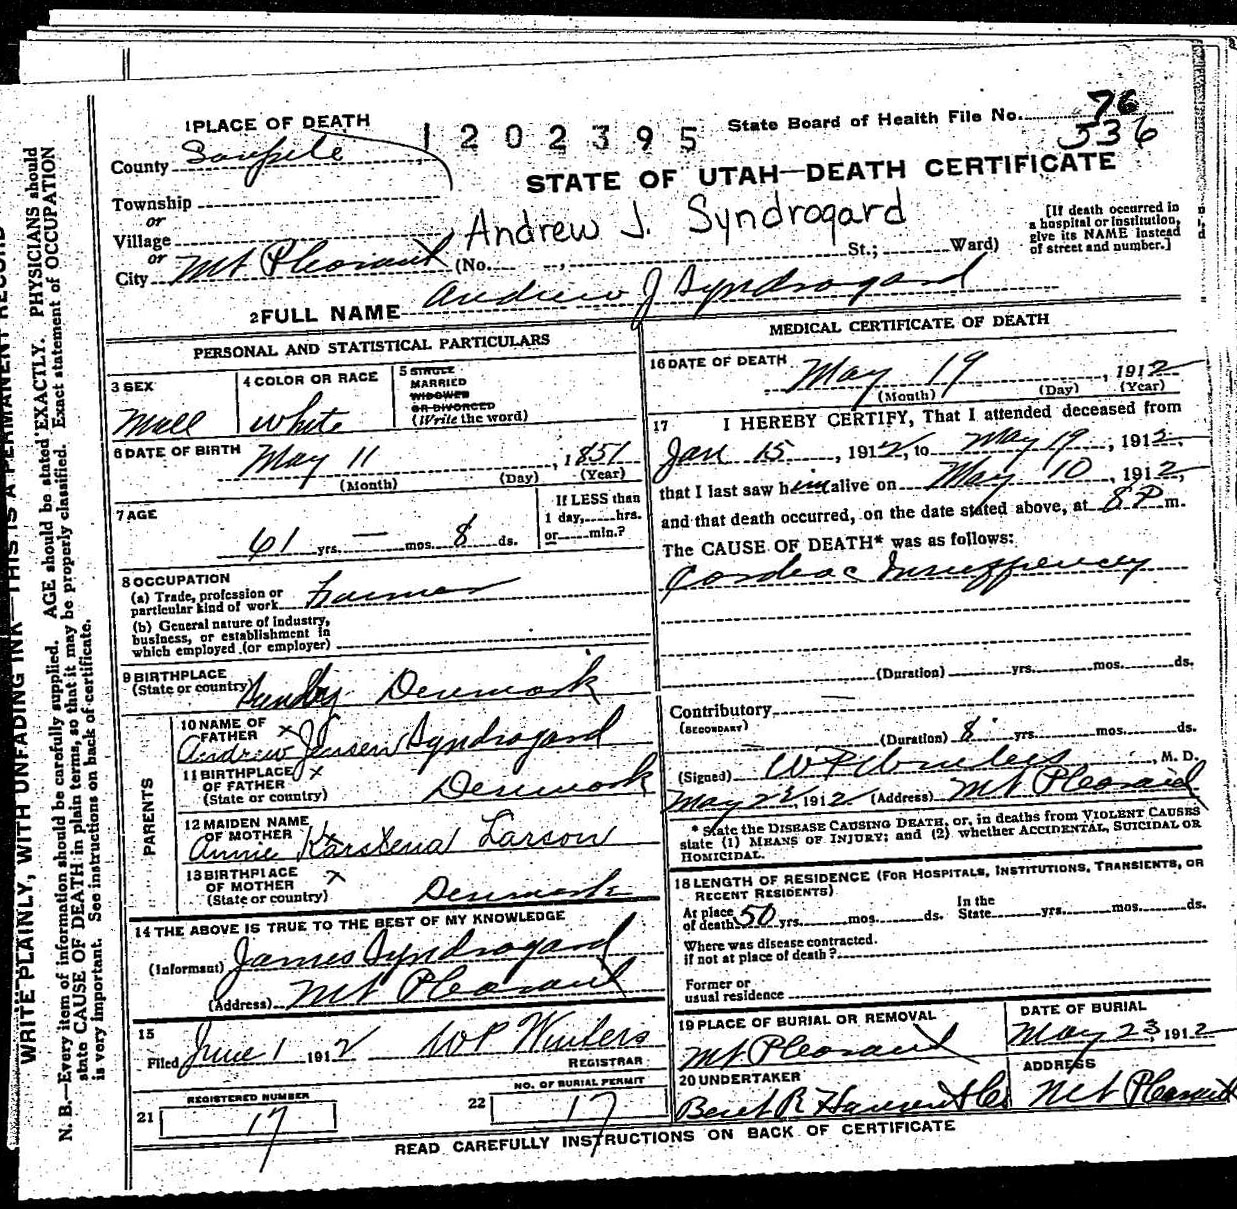 1 PLACE OF DEATH
1202395
State Board of Health File No. 76
536
County Sanpete
STATE OF UTAH—DEATH CERTIFICATE
Township
or
Village
Andrew J. Syndrogard
or
City Mt Pleasant (No. , St.; Ward)
[If death occurred in
a hospital or institution,
give its NAME instead
of street and number.]
2 FULL NAME Andrew J Syndrogard
PERSONAL AND STATISTICAL PARTICULARS
3 SEX
Male
4 COLOR OR RACE
White
5 SINGLE
MARRIED
WIDOWED
OR DIVORCED
(Write the word)
6 DATE OF BIRTH May 11, 1851
(Month) (Day) (Year)
7 AGE
61 yrs. — mos. 8 ds.
If LESS than
1 day, hrs.
or min.?
8 OCCUPATION
(a) Trade, profession or
particular kind of work Farmer
(b) General nature of industry,
business, or establishment in
which employed (or employer)
9 BIRTHPLACE
(State or country) Denmark
PARENTS
10 NAME OF
FATHER
Andrew Jensen Syndrogard
11 BIRTHPLACE
OF FATHER
(State or country) Denmark
12 MAIDEN NAME
OF MOTHER
Annie Karstena Larson
13 BIRTHPLACE
OF MOTHER
(State or country) Denmark
14 THE ABOVE IS TRUE TO THE BEST OF MY KNOWLEDGE
(Informant) James Syndrogard
(Address) Mt Pleasant
15
Filed June 1 1912 W P Winters
REGISTRAR
REGISTERED NUMBER
21 17
NO. OF BURIAL PERMIT
22 17
MEDICAL CERTIFICATE OF DEATH
16 DATE OF DEATH May 19, 1912
(Month) (Day) (Year)
17 I HEREBY CERTIFY, That I attended deceased from
Jan 15, 1912, to May 19, 1912,
that I last saw him alive on May 10, 1912,
and that death occurred, on the date stated above, at 8 P m.
The CAUSE OF DEATH* was as follows:
Cardiac Insufficiency
(Duration) yrs. mos. ds.
Contributory —
(SECONDARY)
(Duration) 8 yrs. mos. ds.
(Signed) W P Winters, M. D.
May 22, 1912 (Address) Mt Pleasant
* State the DISEASE CAUSING DEATH, or, in deaths from VIOLENT CAUSES
state (1) MEANS OF INJURY; and (2) whether ACCIDENTAL, SUICIDAL OR
HOMICIDAL.
18 LENGTH OF RESIDENCE (FOR HOSPITALS, INSTITUTIONS, TRANSIENTS, OR
RECENT RESIDENTS)
At place
of death 50 yrs. mos. ds.
In the
State yrs. mos. ds.
Where was disease contracted.
if not at place of death?
Former or
usual residence
19 PLACE OF BURIAL OR REMOVAL
Mt Pleasant
DATE OF BURIAL
May 23, 1912
20 UNDERTAKER
R Hansen & Co
ADDRESS
Mt Pleasant
READ CAREFULLY INSTRUCTIONS ON BACK OF CERTIFICATE
WRITE PLAINLY, WITH UNFADING INK—THIS IS A PERMANENT RECORD
N. B.—Every item of information should be carefully supplied. AGE should be stated EXACTLY. PHYSICIANS should
state CAUSE OF DEATH in plain terms, so that it may be properly classified. Exact statement of OCCUPATION
is very important. See instructions on back of certificate.